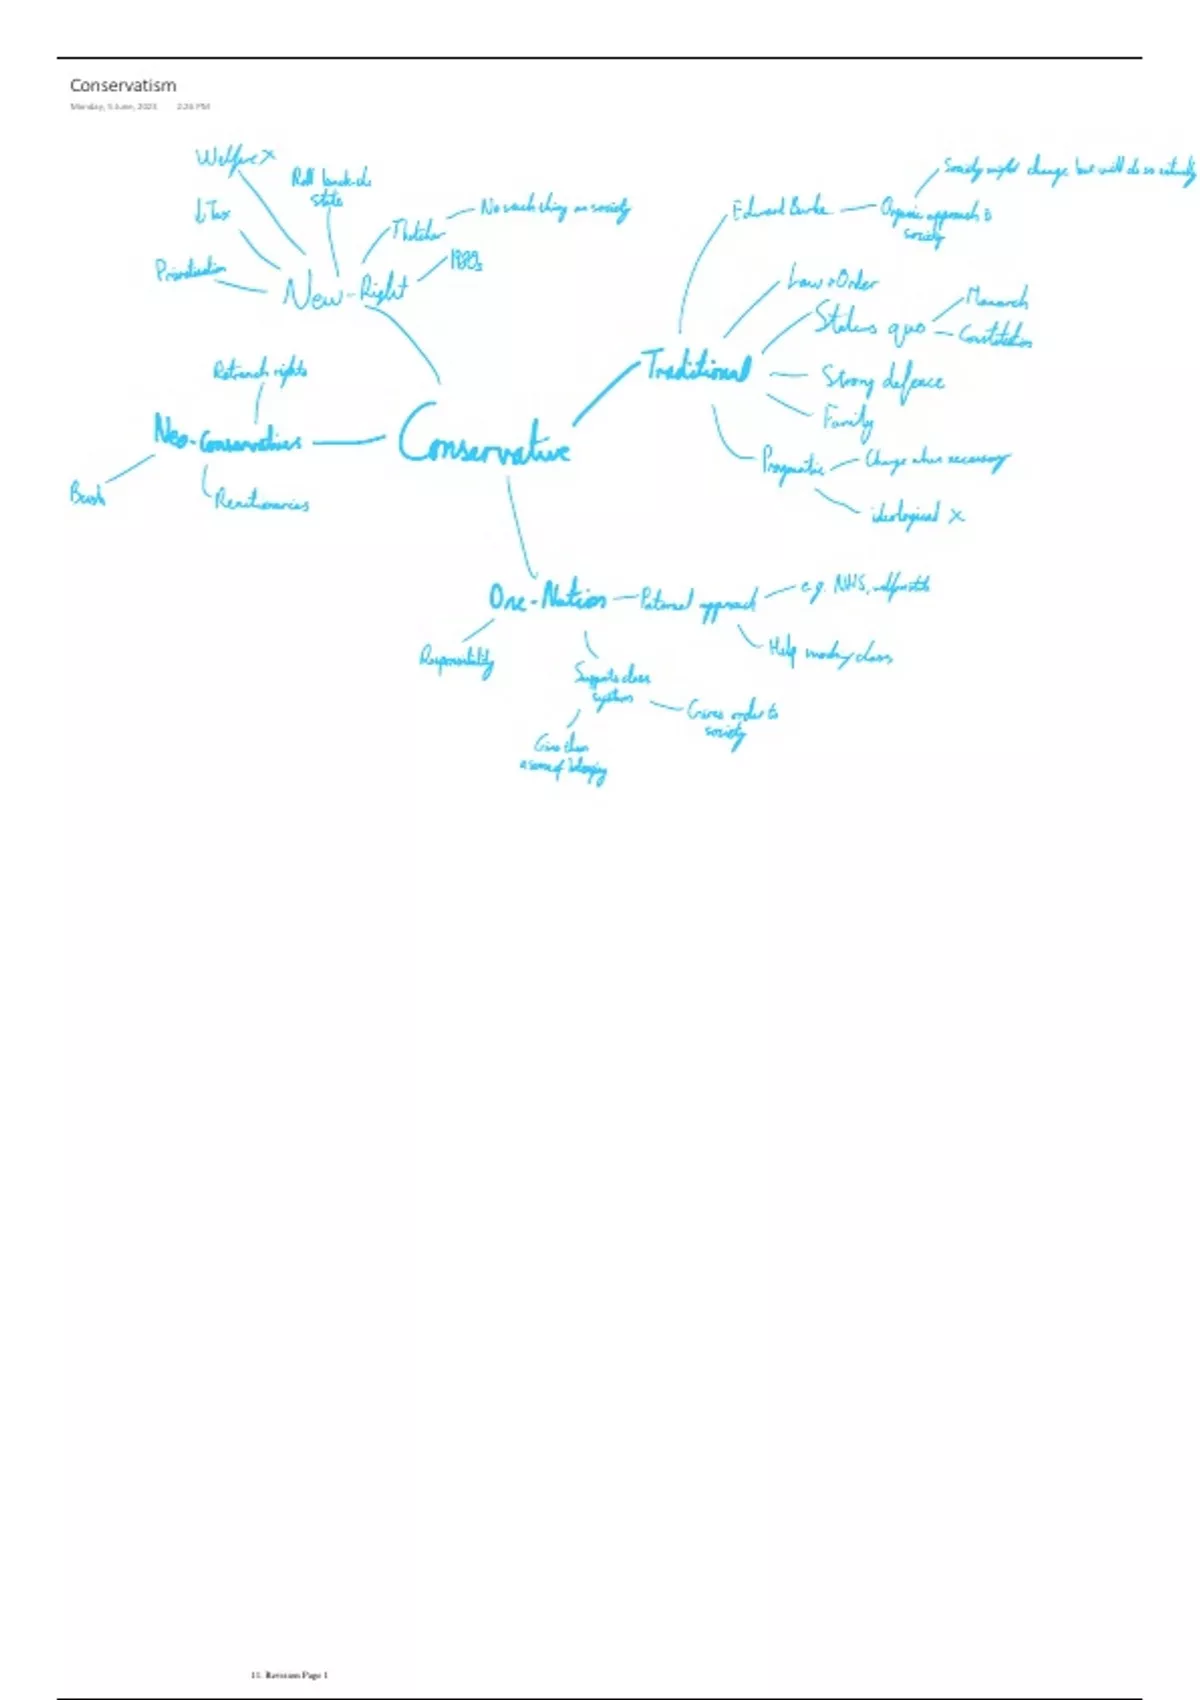 Conservatism
Monday, 5 June, 2023 2:26 PM
Welfare X
Roll back the
state
↓ Tax
Privatisation
New-Right
Thatcher
No such thing as society
1980s
Retrench rights
Neo-Conservatives
Bush
Reactionaries
Conservative
Traditional
Edmund Burke
Organic approach to
society
Society might change, but will do so naturally
Law + Order
Status quo
Monarch
Constitution
Strong defence
Family
Pragmatic
Change when necessary
ideological X
One-Nation
Paternal approach
e.g. NHS, welfare state
Help working class
Responsibility
Supports class
system
Gives order to
society
Give them
a sense of belonging
11. Revision Page 1